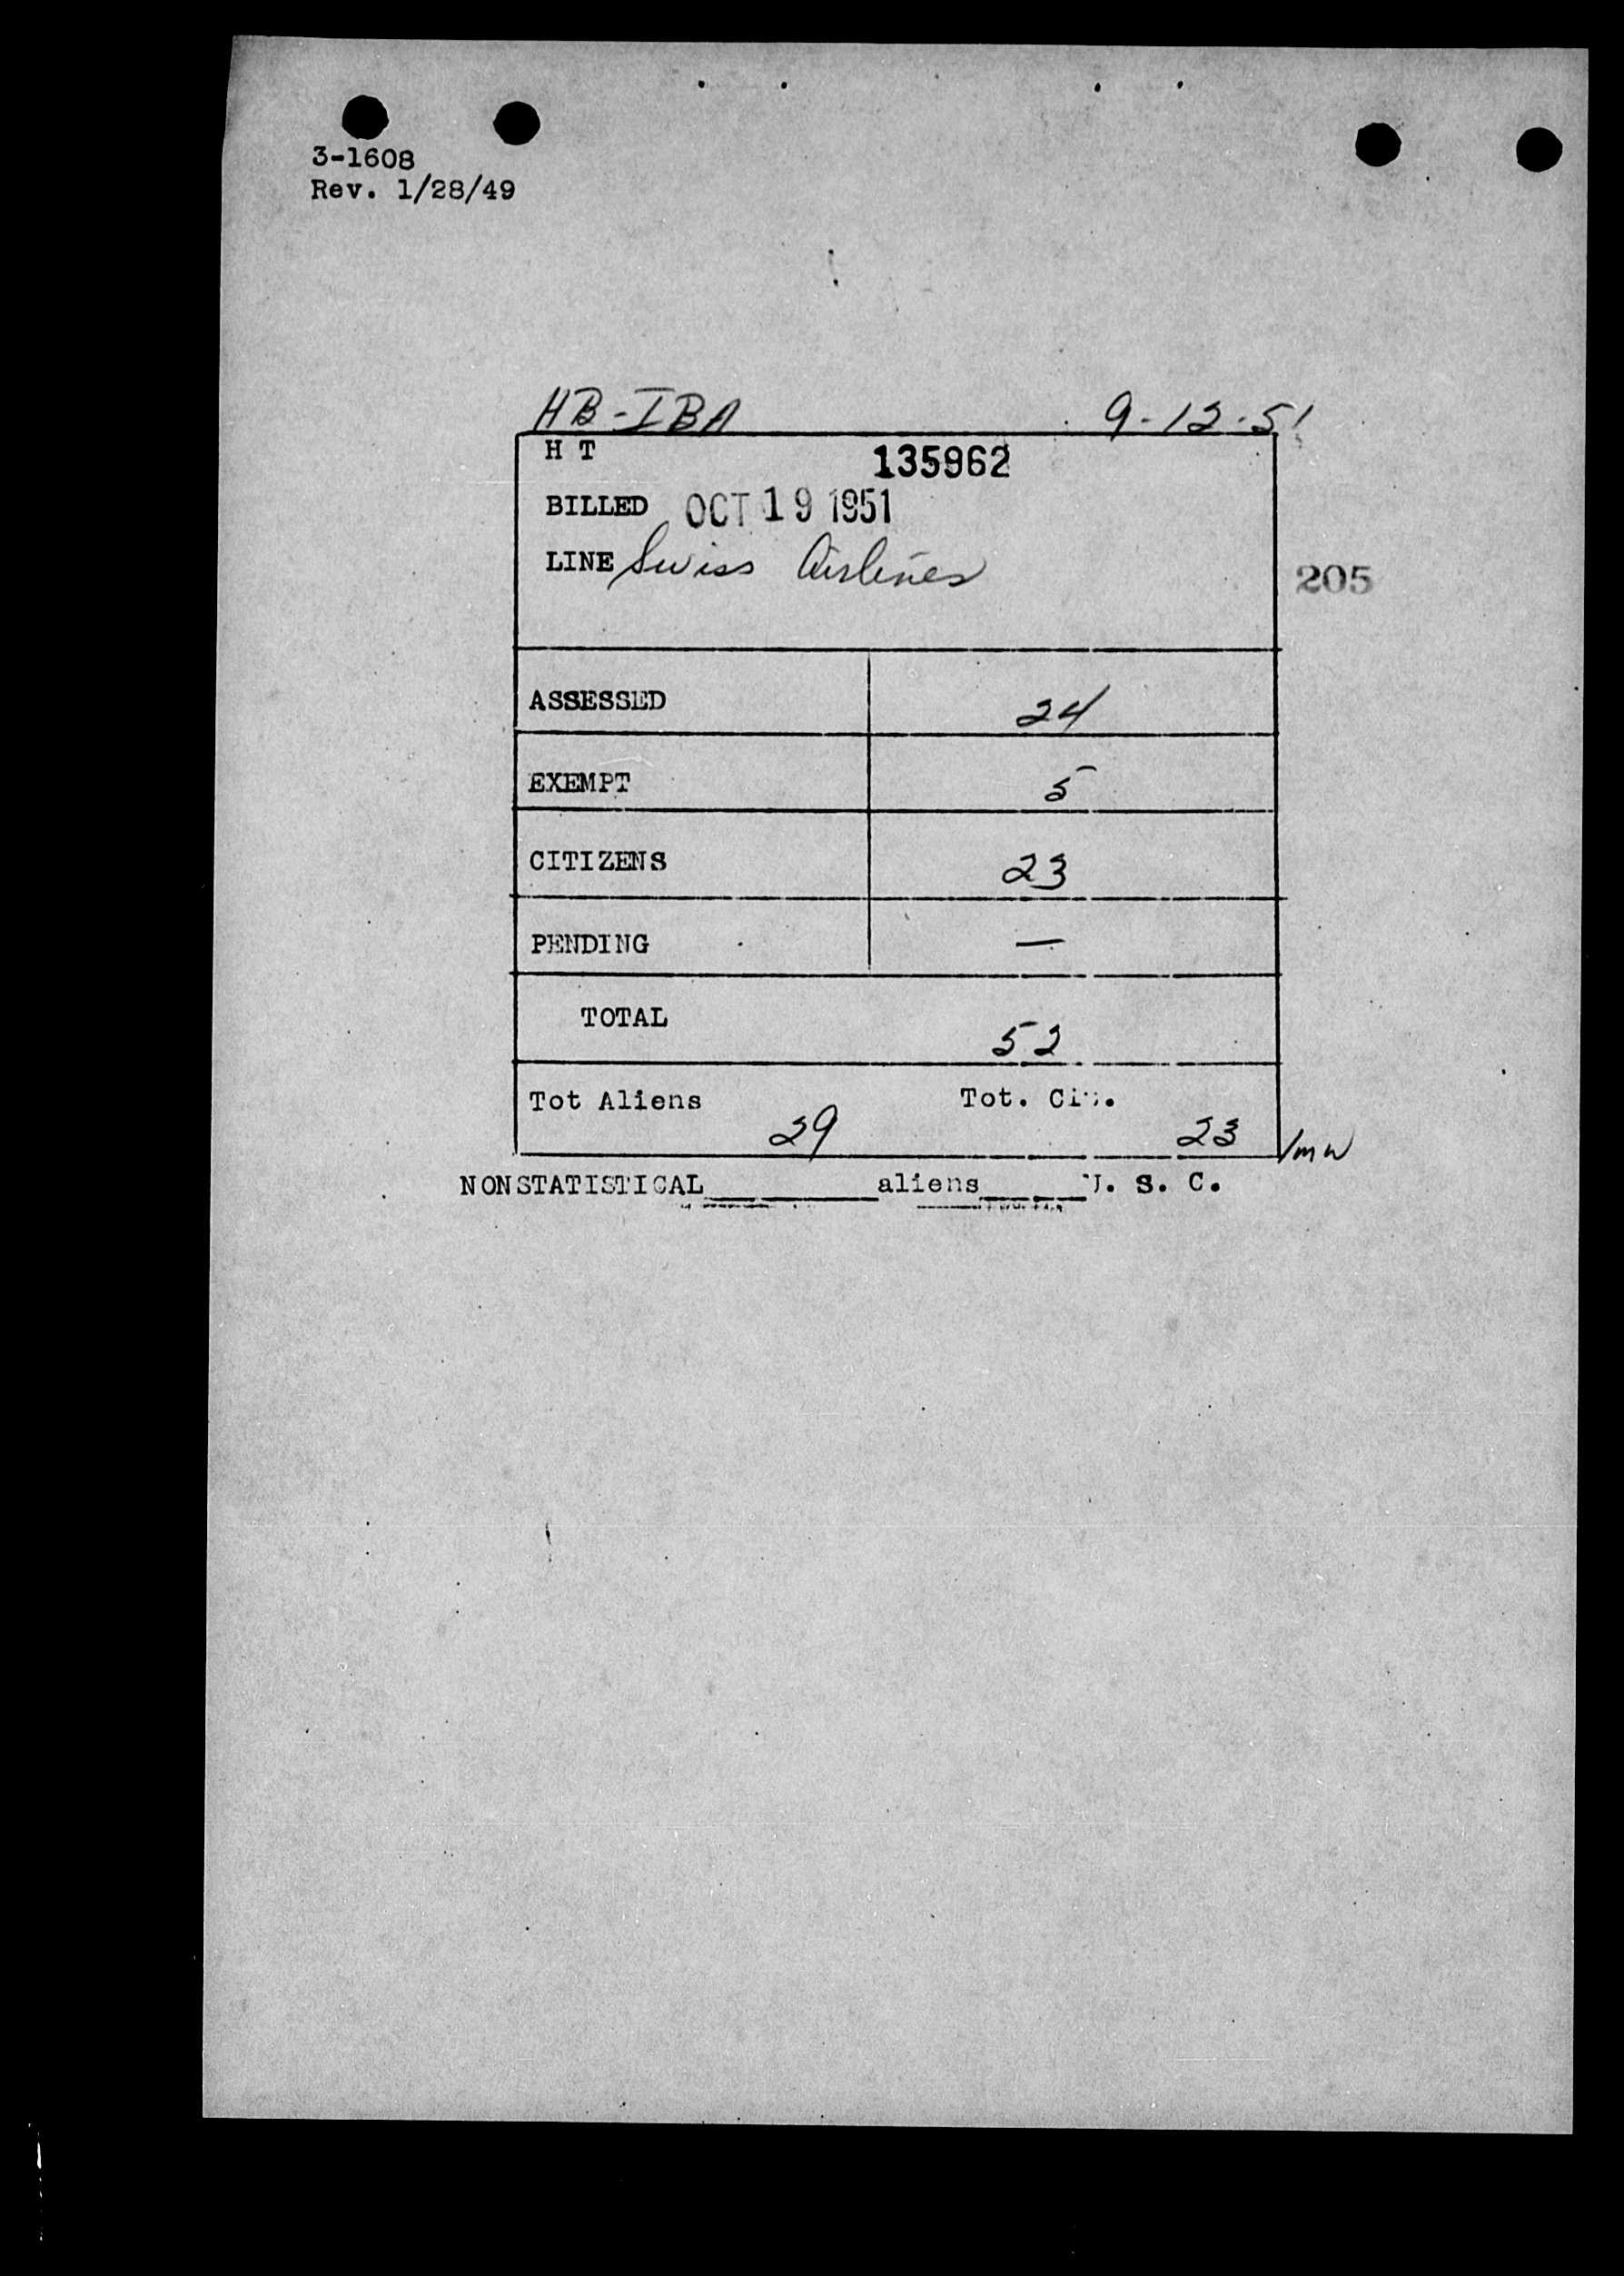 3-1608
Rev. 1/28/49
HB-IBA 9-12-51
H T 135962
BILLED OCT 19 1951
LINE Swiss Airlines
205
ASSESSED 24
EXEMPT 5
CITIZENS 23
PENDING —
TOTAL 52
Tot Aliens Tot. Cit.
29 23 /mw
NONSTATISTICAL______aliens____U. S. C.